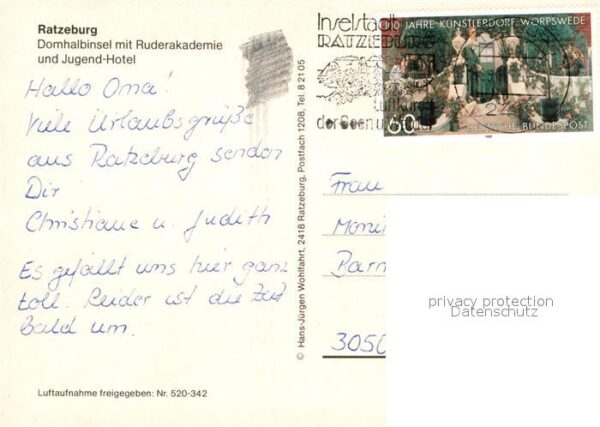 Ratzeburg
Domhalbinsel mit Ruderakademie
und Jugend-Hotel
Hallo Oma!
Viele Urlaubsgrüße
aus Ratzeburg senden
Dir
Christiane u. Judith
Es gefällt uns hier ganz
toll. Leider ist die Zeit
bald um.
Luftaufnahme freigegeben: Nr. 520-342
© Hans-Jürgen Wohlfahrt, 2418 Ratzeburg, Postfach 1208, Tel. 8 21 05
Inselstadt
RATZEBURG
Luftkur
der Seen u
100 JAHRE KÜNSTLERDORF WORPSWEDE
60 DEUTSCHE BUNDESPOST
Frau
Moni
Parn
3050
privacy protection
Datenschutz